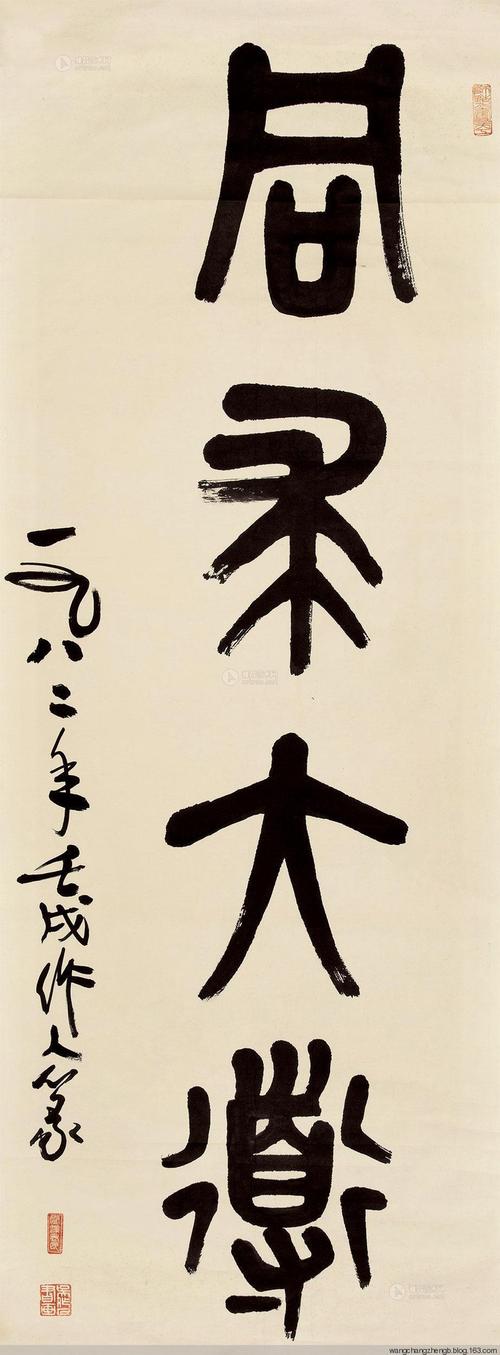 同求大道
一九八二年壬戌作人篆
wangchangzhengb.blog.163.com